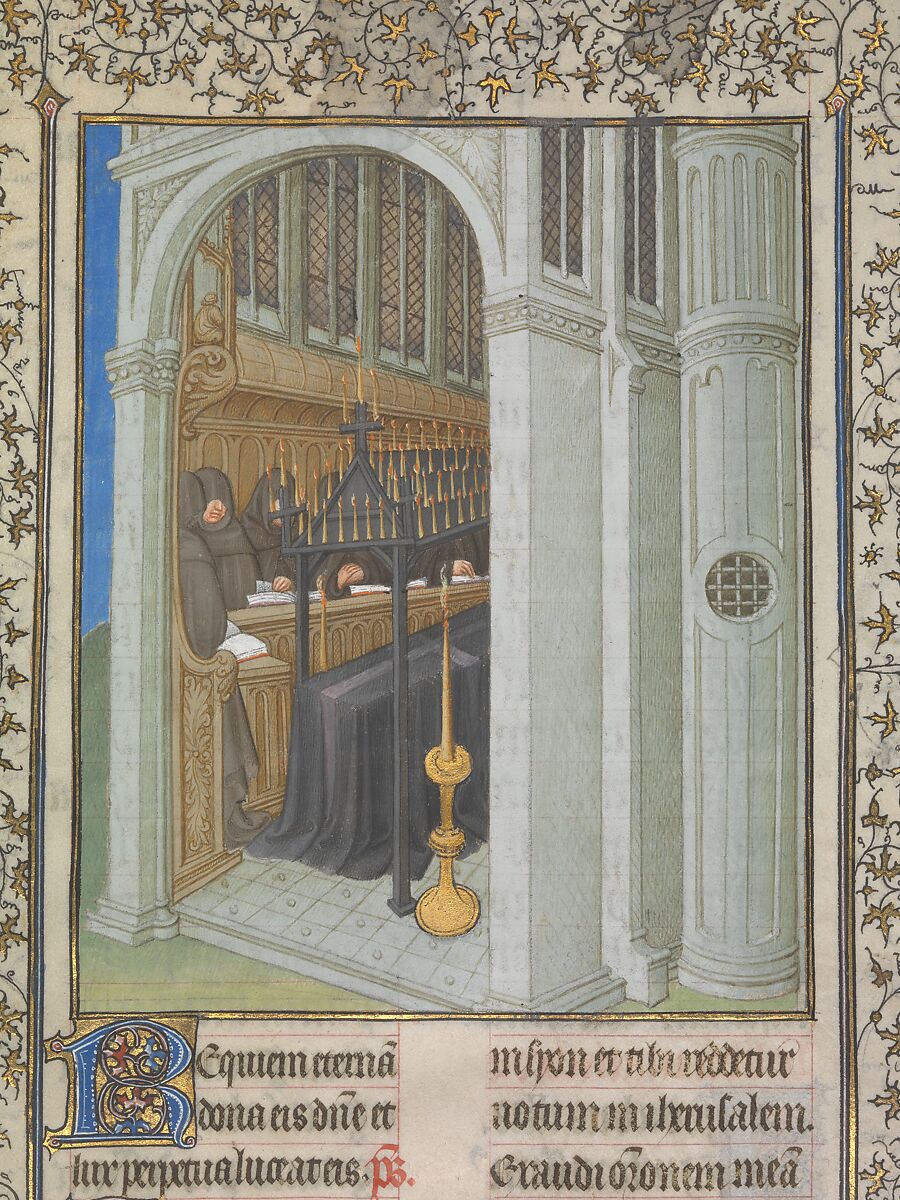 Requiem eternã
dona eis dñe et
lux perpetua luceat eis. ps.
in syon et tibi reddetur
uotum in iherusalem.
Exaudi orõnem meã